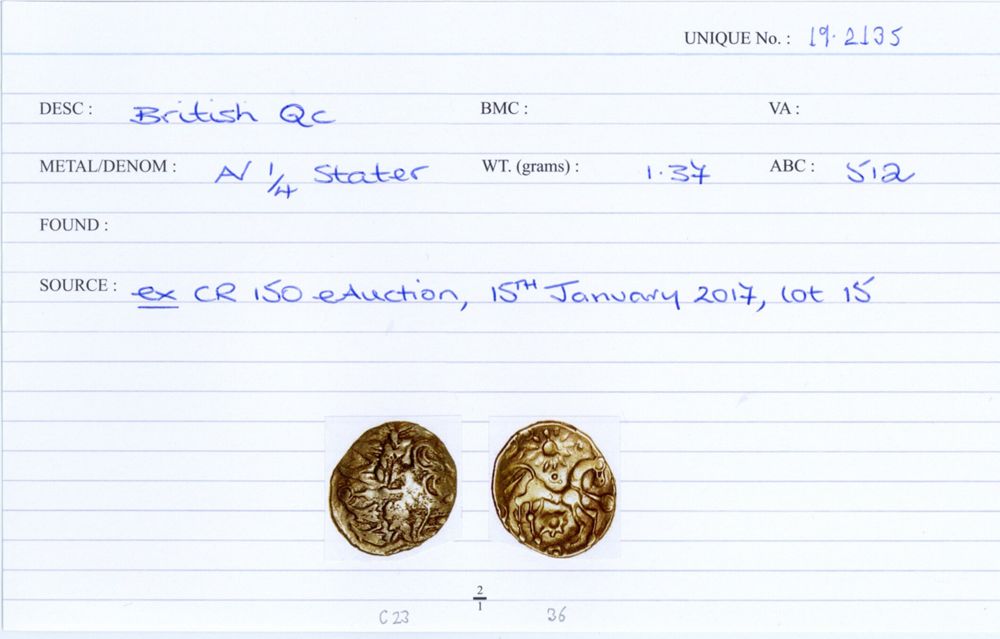 UNIQUE No. : 19.2135
DESC : British Qc BMC : VA :
METAL/DENOM : AV 1/4 Stater WT. (grams) : 1.37 ABC : 512
FOUND :
SOURCE : ex CR 150 eAuction, 15TH January 2017, lot 15
2/1
C23 36